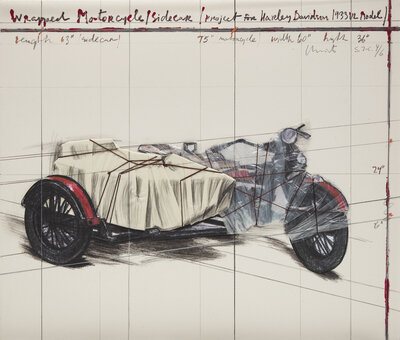 Wrapped Motorcycle/Sidecar (Project for Harley Davidson 1933 VL Model)
length 63" (sidecar) 75" motorcycle width 60" height 36"
24"